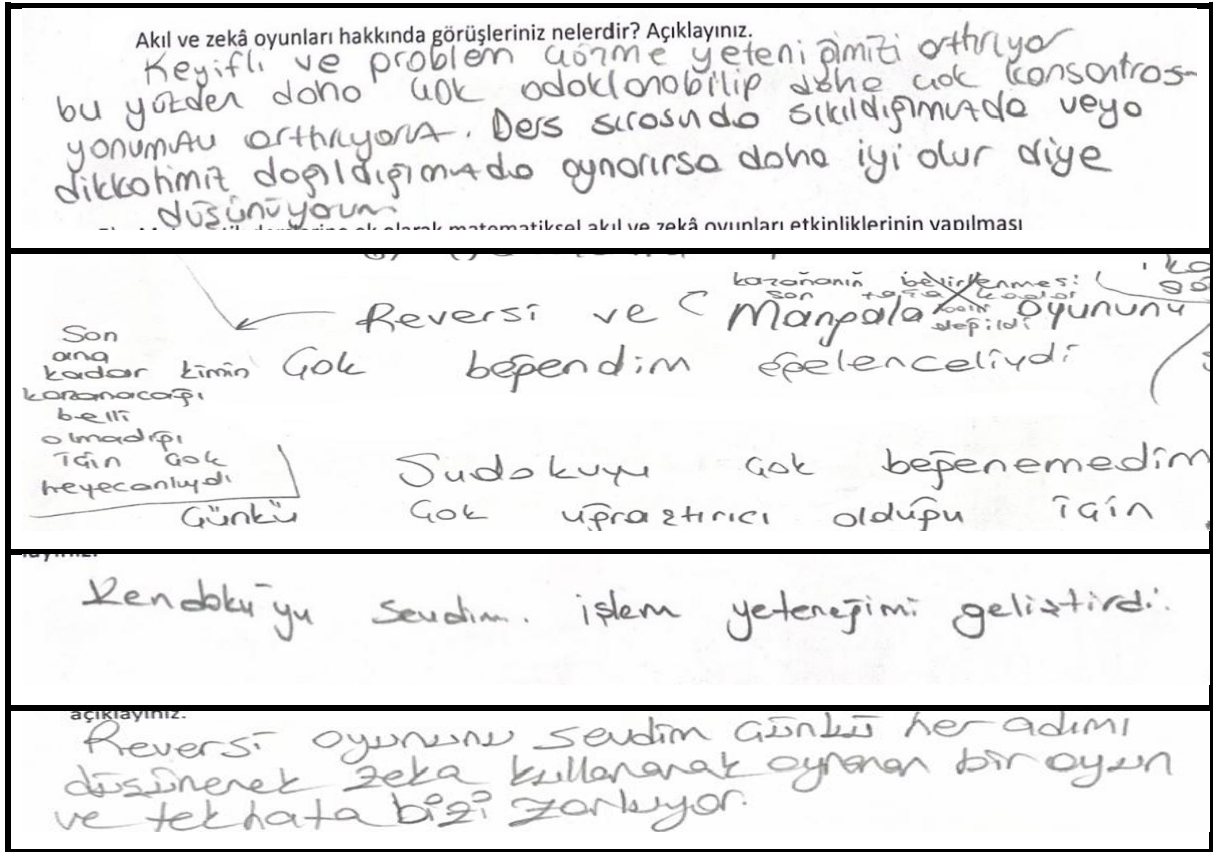 Akıl ve zekâ oyunları hakkında görüşleriniz nelerdir? Açıklayınız.
Keyifli ve problem çözme yeteniğimizi arttırıyor
bu yüzden daha çok odaklanabilip daha çok konsantras-
yonumuzu arttırıyoruz. Ders sırasında sıkıldığımızda veya
dikkatimiz dağıldığımızda oynanırsa daha iyi olur diye
düşünüyorum.
matematiksel akıl ve zekâ oyunları etkinliklerinin yapılması
kazananın belirlenmesi
son taşa kadar
Reversi ve Mangala oyununu
değildi
Son
ana
kadar kimin çok beğendim eğelenceliydi
kazanacağı
belli
olmadığı
için çok
heyecanlıydı
Sudokuyu çok beğenemedim
Çünkü çok uğraştırıcı olduğu için
Kendoku'yu sevdim. işlem yeteneğimi geliştirdi.
açıklayınız.
Reversi oyununu sevdim çünkü her adımı
düşünerek zeka kullanarak oynanan bir oyun
ve tek hata bizi zorluyor.